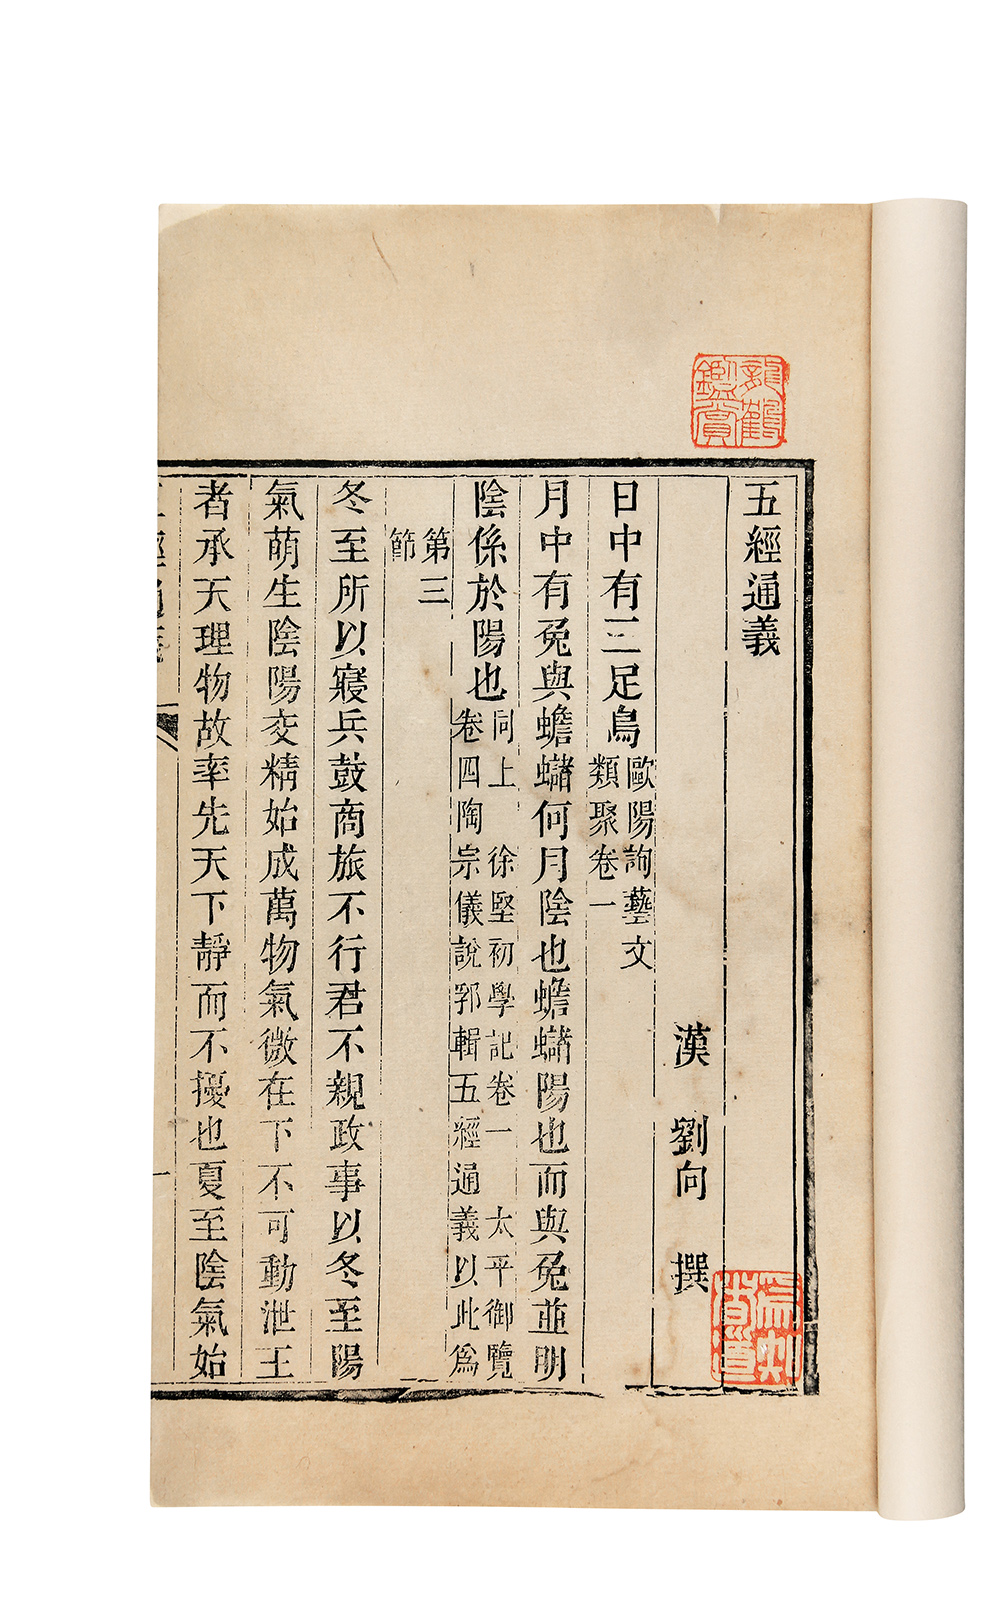 五經通義
漢　劉向　撰
日中有三足烏歐陽詢藝文類聚卷一
月中有兔與蟾蠩何月陰也蟾蠩陽也而與兔並明
陰係於陽也同上　徐堅初學記卷一　太平御覽卷四陶宗儀說郛輯五經通義以此爲
第三節
冬至所以寢兵鼓商旅不行君不親政事以冬至陽
氣萌生陰陽交精始成萬物氣微在下不可動泄王
者承天理物故率先天下靜而不擾也夏至陰氣始
龍鶴鑑賞